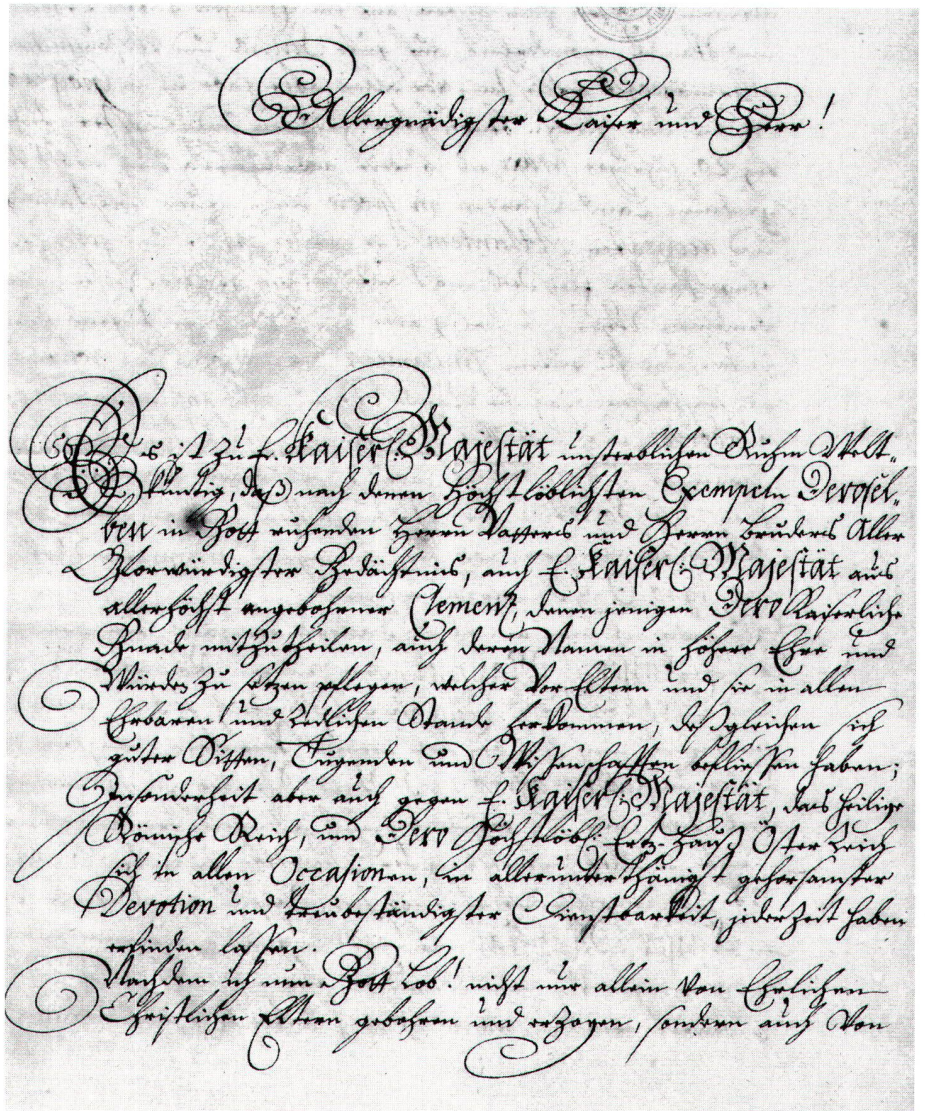 Allergnädigster Kaiser und Herr!
Es ist zu E. Kaiserl: Majestät unsterblichen Ruhm Welt-
kündig, daß nach denen Höchstlöblichsten Exempeln Derosel-
ben in Gott ruhenden Herrn Vatters und Herrn Bruders Aller
Glorwürdigster Gedächtnis, auch E. Kaiserl: Majestät aus
allerhöchst angebohrner Clemenz, denen jenigen Dero Kaiserliche
Gnade mitzutheilen, auch deren Namen in höhere Ehre und
Würden zu setzen pflegen, welcher Vor Eltern und sie in allen
Ehrbaren und Redlichen Stande herkommen, deßgleichen sich
guter Sitten, Tugenden und Wissenschafften befliessen haben;
Insonderheit aber auch gegen E. Kaiserl: Majestät, das heilige
Römische Reich, und Dero Höchstlöbl: Ertz-Hauß Österreich
sich in allen Occasionen, in allerunterthänigst gehorsamster
Devotion und treubeständigster Dienstbarkeit, jederzeit haben
erfinden lassen.
Nachdem ich nun Gott Lob! nicht nur allein von Ehrlichen
Christlichen Eltern gebohren und erzogen, sondern auch Von